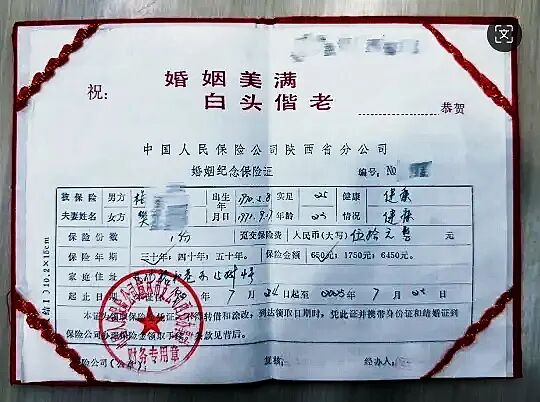 祝： 婚姻美满
白头偕老 恭贺
中国人民保险公司陕西省分公司
婚姻纪念保险证 编号：No
被保险 男方 杨 出生年 1970.5.8 实足 25 健康 健康
夫妻姓名 女方 樊 月日 1971.9.7 年龄 23 情况 健康
保险份数 1份 趸交保险费 人民币(大写) 伍拾元整 元
保险年期 三十年：四十年：五十年。 保险金额 650元：1750元：6450元。
家庭住址
起止日期 7月 日起至 年7月 日
本证为领取保险 凭证，不得转借和涂改，到达领取日期时，凭此证并携带身份证和结婚证到
保险公司办理保险金领取手续， 条款见背后。
保险公司(公章) 复核： 经办人：
财务专用章
结1)10.2×15cm